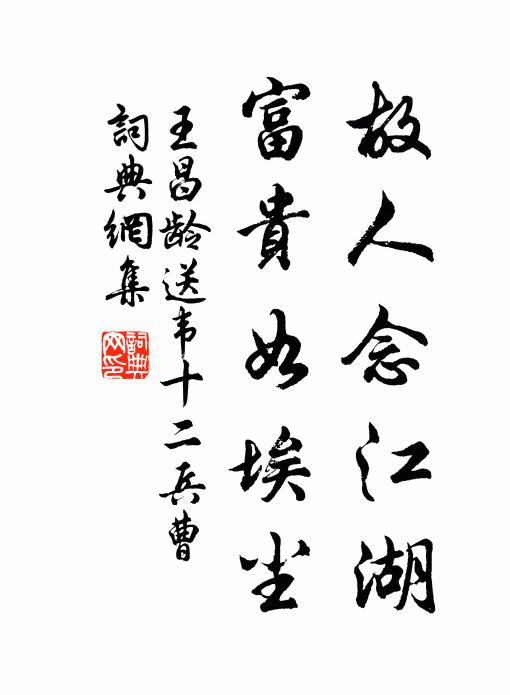 故人念江湖
富貴如埃尘
王昌龄送韦十二兵曹
詞典網集
詞典
网印